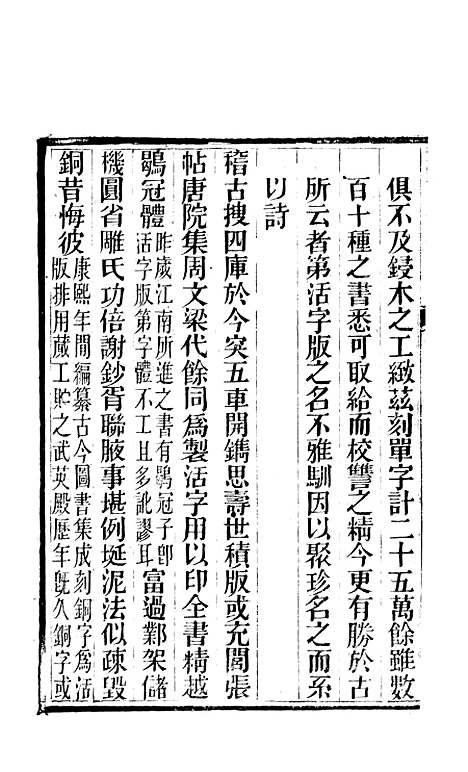 俱不及鋟木之工緻茲刻單字計二十五萬餘雖數
百十種之書悉可取給而校讐之精今更有勝於古
所云者第活字版之名不雅馴因以聚珍名之而系
以詩
稽古搜四庫於今突五車開鐫思壽世積版或充閭張
帖唐院集周文梁代餘同爲製活字用以印全書精越
鶡冠體昨歲江南所進之書有鶡冠子卽活字版第字體不工且多訛謬耳富過鄴架儲
機圓省雕氏功倍謝鈔胥聯腋事堪例埏泥法似疎毀
銅昔悔彼康熙年間編纂古今圖書集成刻銅字爲活版排用蕆工貯之武英殿歷年旣久銅字或